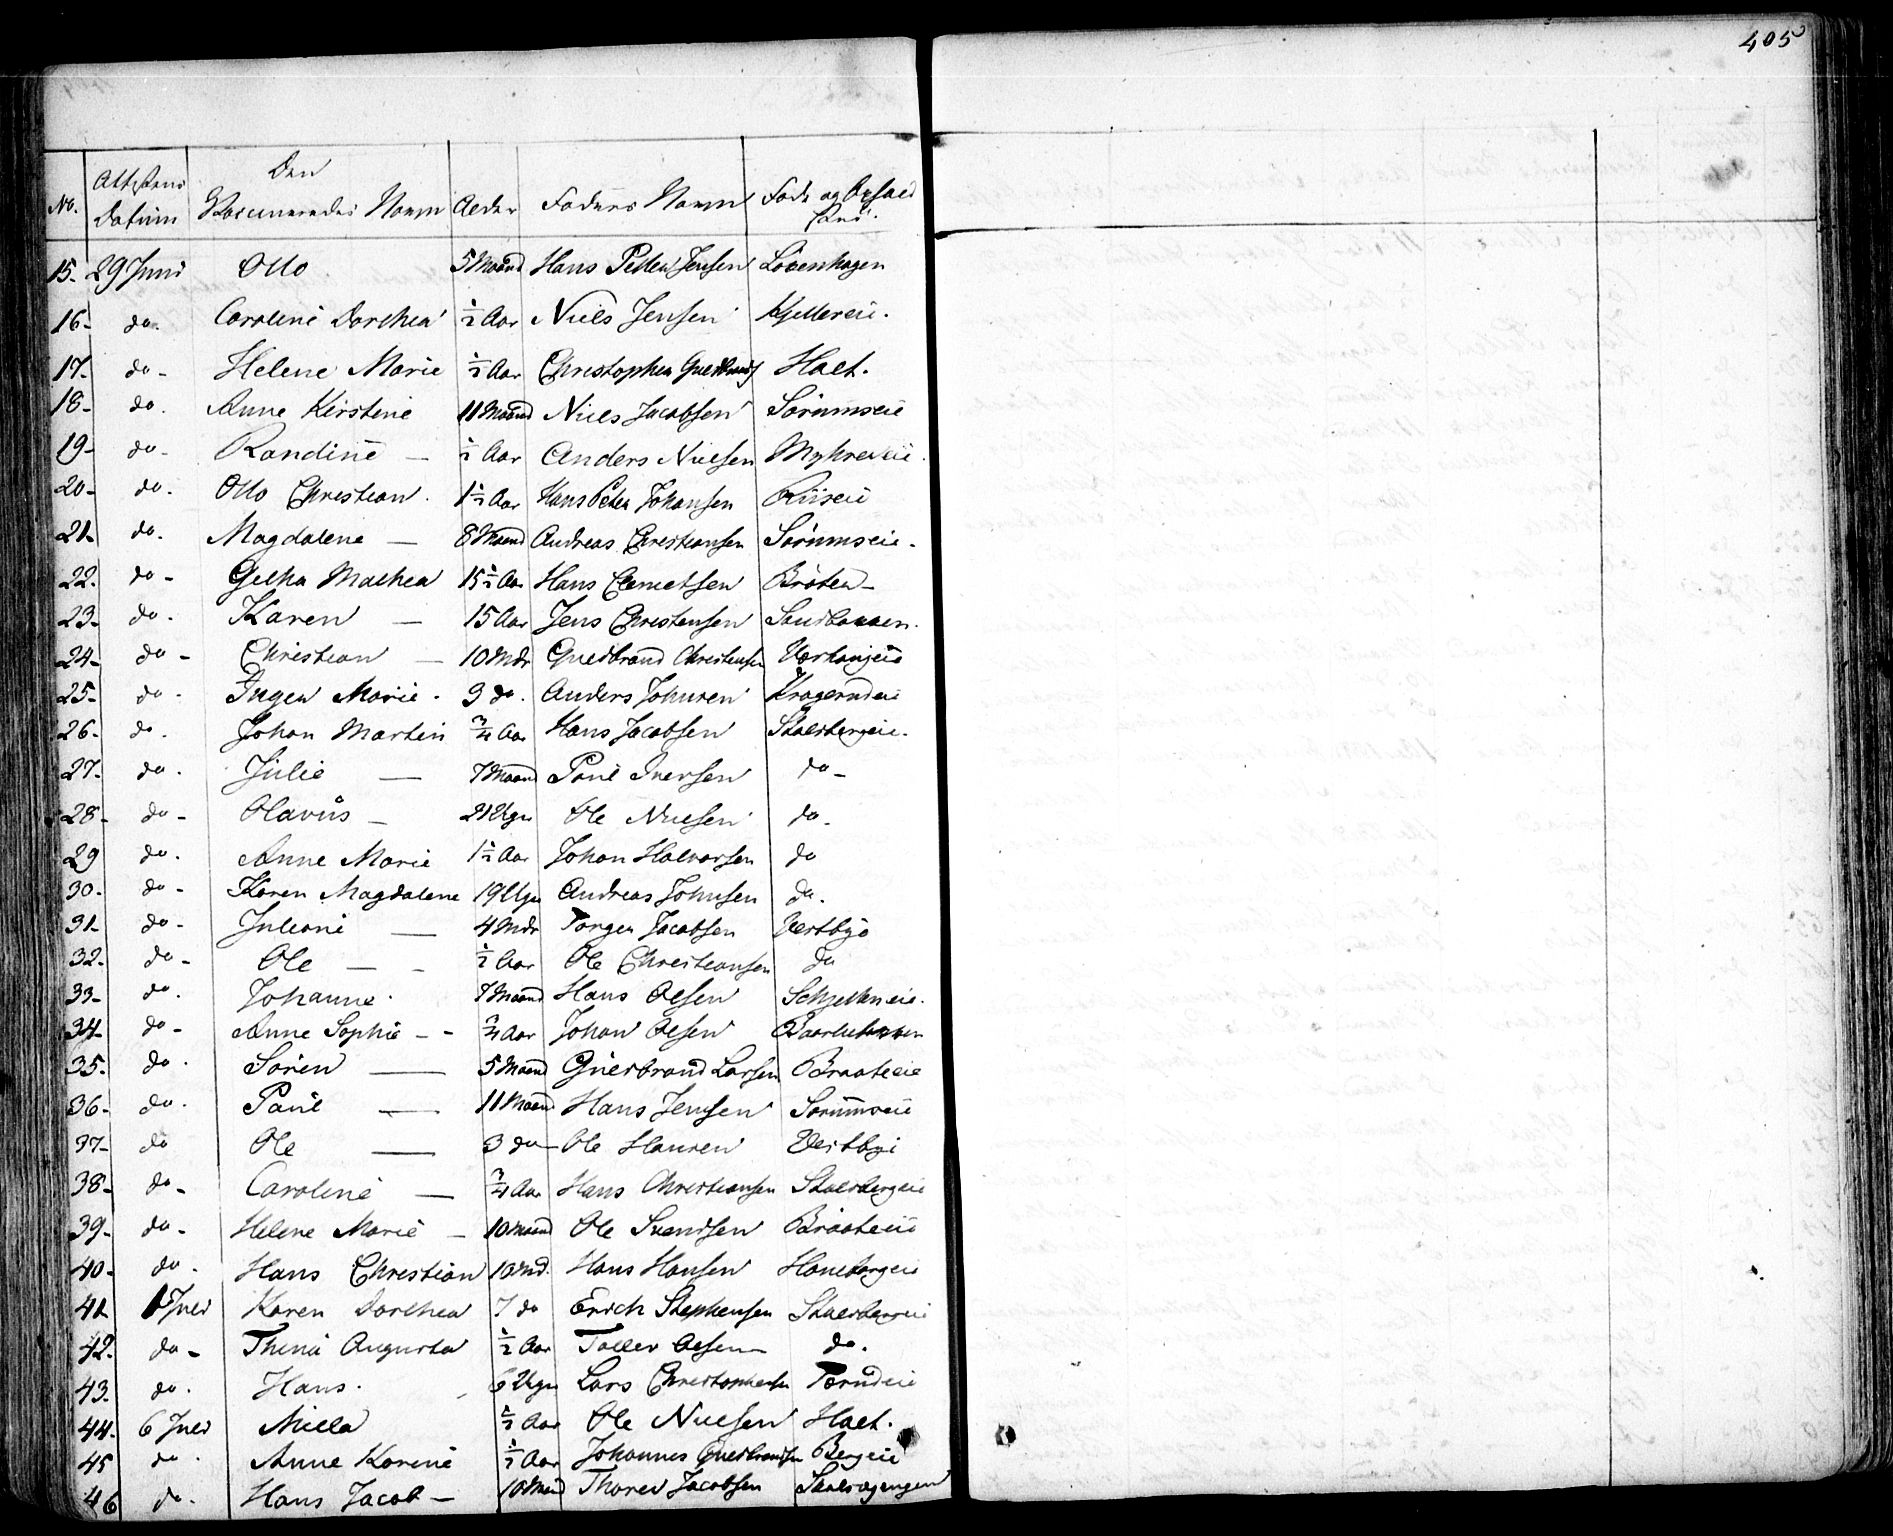 405
No. Attestens Datum Den Vaccineredes Navn Alder Faders Navn Føde og Opholds Sted
15. 29 Juni Otto 5 Maaned Hans Petter Jensen Løvenhagen
16- do. Caroline Dorthea ½ Aar Niels Jensen Kjellereie.
17- do- Helene Marie ½ Aar Christopher Gulbrands Holt.
18- do. Anne Kirstine 11 Maaned Niels Jacobsen Sørumseie
19- do- Randine - ½ Aar Anders Nielsen Myhreeie.
20- do. Otto Christian. 1½ Aar Hans Peter Johansen Riiseie
21- do. Magdalene - 8 Maaned Andreas Christiansen Sørumseie-
22. do- Mathea 15½ Aar Hans Clemetsen Bråten-
23- do. Karen - 15 Aar Jens Christensen Sandbakken.
24- do- Christian - 10 Mdr Gulbrand Christensen
25- do. Inger Marie. 3 do. Anders Johnsen Kragerudeie
26- do. Johan Martin ¾ Aar Hans Jacobsen Stalsbergeie-
27- do. Julie - 7 Maaned Paul Iversen do-
28- do- Olavus - 21 Uger Ole Nielsen do-
29 do. Anne Marie 1½ Aar Johan Halvorsen do
30- do- Karen Magdalene 19 Uger Andreas Johnsen do.
31- do- Juliane - 4 Mdr Torger Jacobsen Vestbye
32- do- Ole - - ½ Aar Ole Christiansen do
33- do. Johanne. 7 Maaned Hans Olsen Schjetneeie.
34- do- Anne Sophie - - ¾ Aar Johan Olsen
35- do. Søren - 5 Maaned Gulbrand Larsen Braateeie
36- do. Paul - 11 Maaned Hans Jensen Sørumseie
37- do Ole - 3 do- Ole Hansen Vestbye
38- do- Caroline - ¾ Aar Hans Christiansen Stalsbergeie
39- do- Helene Marie - 10 Maaned Ole Svendsen Braateeie
40- do. Hans Christian 10 Md. Hans Hansen Hanebergeie
41 1 Juli Karen Dorthea 7 do Erich Stephensen Stalsbergeie
42. do- Thina Augusta ½ Aar Toller Olsen- do.
43. do. Hans. 6 Uger Lars Christophersen Tærudeie
44- 6 Juli Milla ½ Aar Ole Nielsen Holt.
45 do. Anne Karine ½ Aar Johannes Gulbrandsen Bergeie
46 do. Hans Jacob - 10 Maaned Thorer Jacobsen